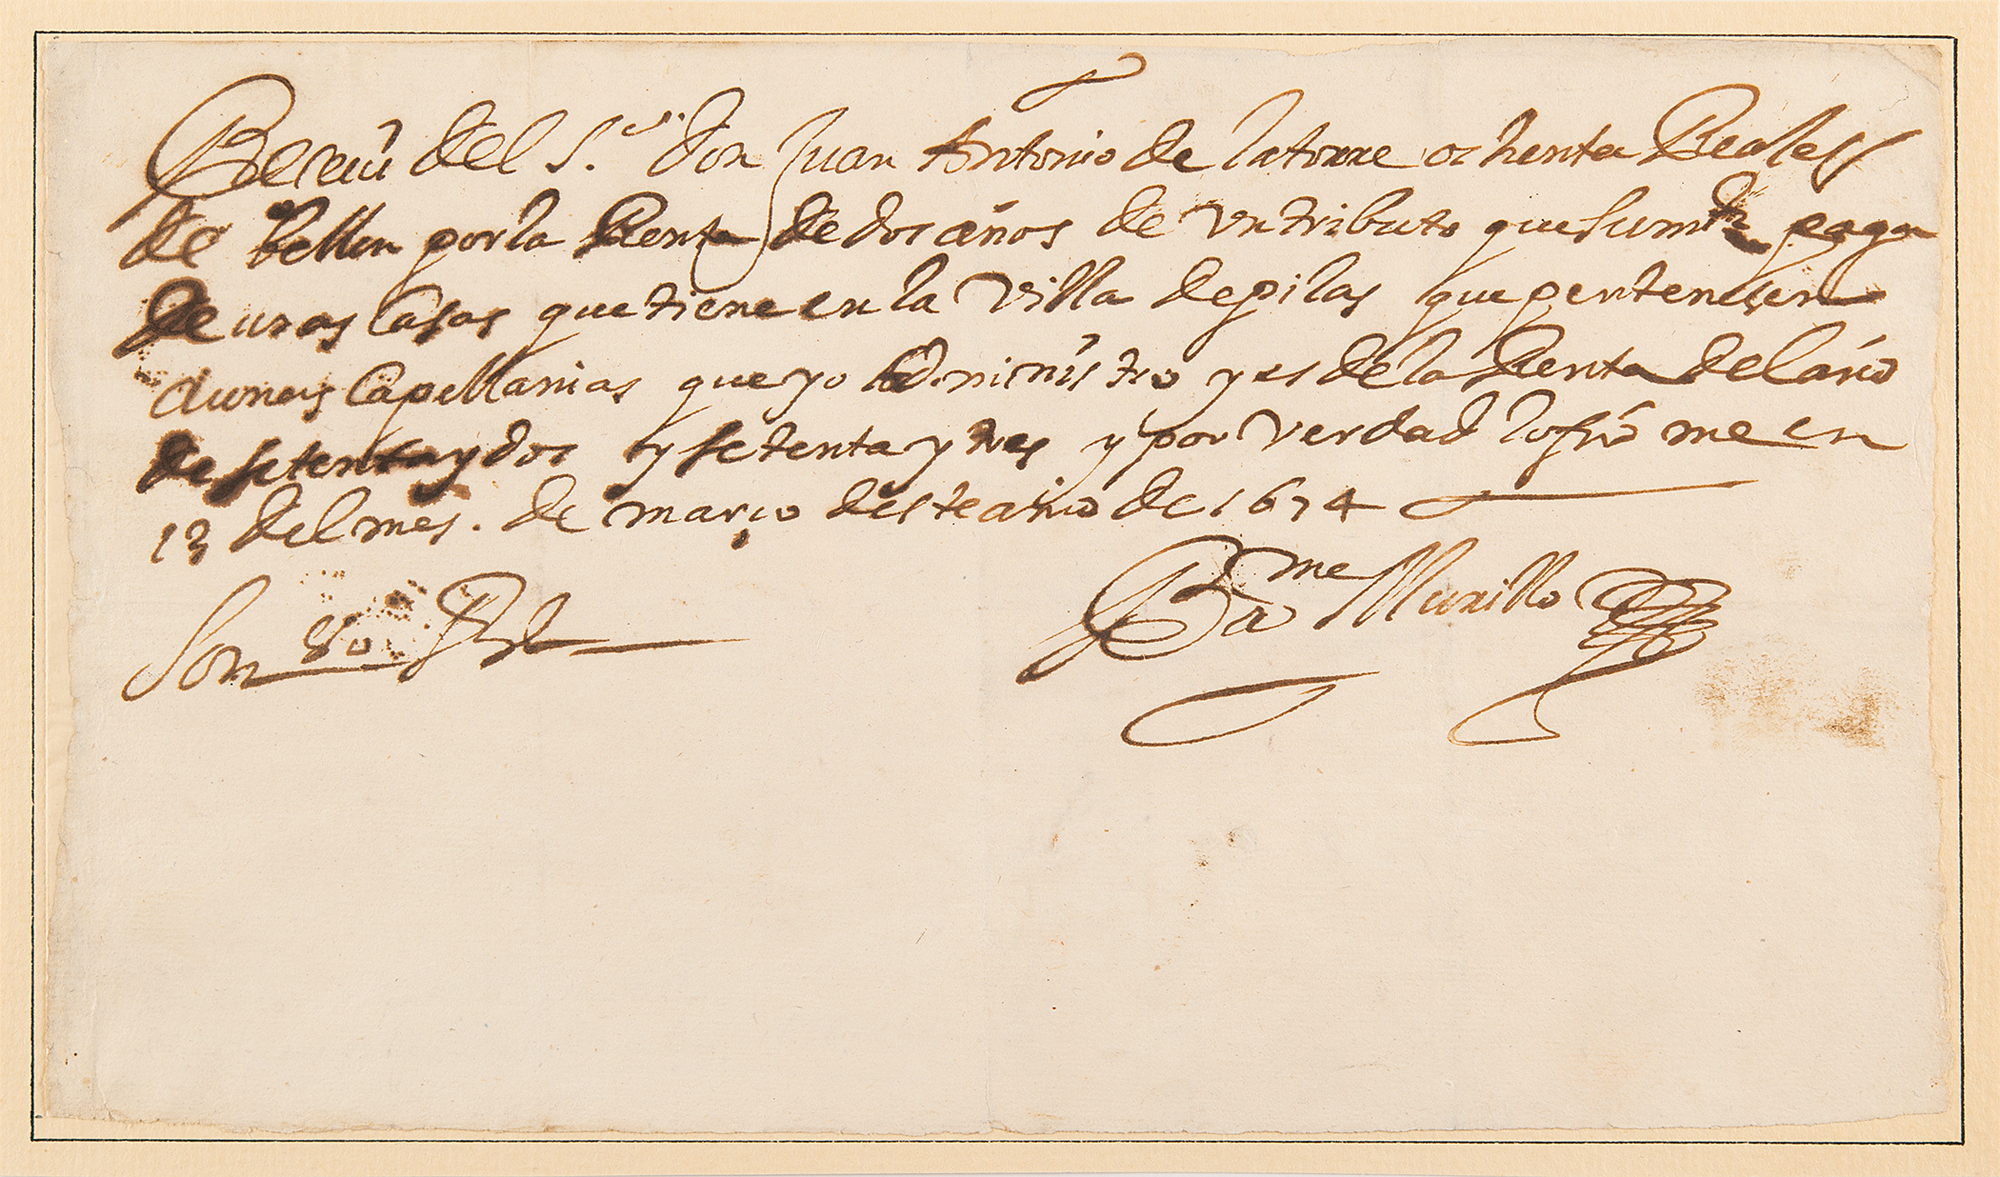 Recevi del S.or don Juan Antonio de latorre ochenta Reales
de bellon por la Renta de dos años de vn tributo que su md paga
de unas casas que tiene en la villa de pilas que pertenesen
a unas Capellanias que yo Administro y es de la Renta del año
de setenta y dos y setenta y tres y por verdad lo firme en
13 del mes. de março deste año de 1674
Son 80 Rs
Barme Murillo